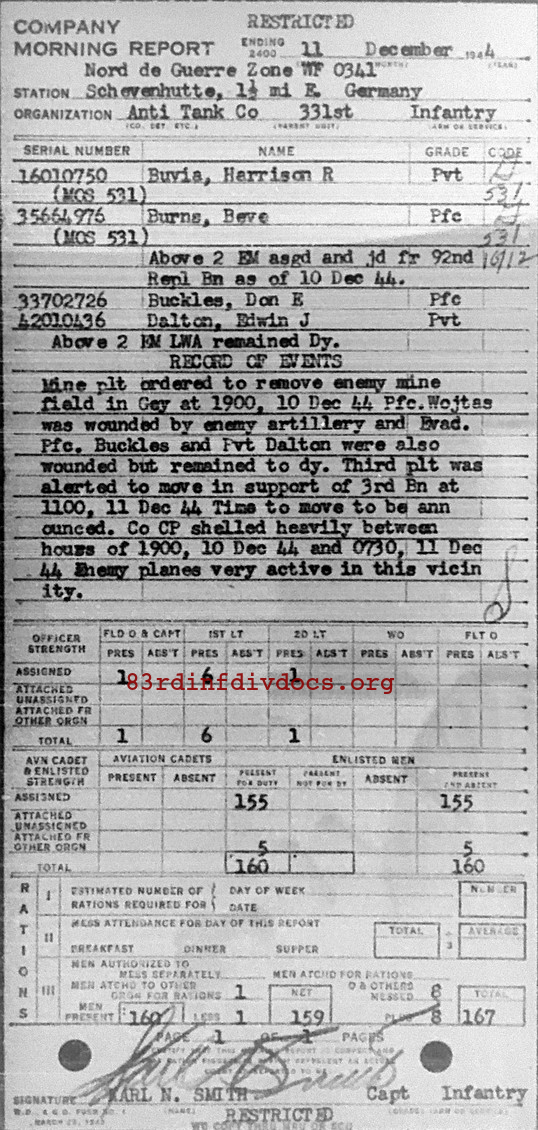 RESTRICTED
COMPANY
MORNING REPORT ENDING 2400 11 December 1944
Nord de Guerre Zone WF 0341
STATION Schevenhutte, 1½ mi E. Germany
ORGANIZATION Anti Tank Co 331st Infantry
(CO. DET. ETC.) (PARENT UNIT) (ARM OR SERVICE)
SERIAL NUMBER NAME GRADE CODE
16010750 Buvia, Harrison R Pvt
(MOS 531) 531
35664976 Burns, Beve Pfc
(MOS 531) 531
Above 2 EM asgd and jd fr 92nd 10/12
Repl Bn as of 10 Dec 44.
33702726 Buckles, Don E Pfc
42010436 Dalton, Edwin J Pvt
Above 2 EM LWA remained Dy.
RECORD OF EVENTS
Mine plt ordered to remove enemy mine
field in Gey at 1900, 10 Dec 44 Pfc.Wojtas
was wounded by enemy artillery and Evad.
Pfc. Buckles and Pvt Dalton were also
wounded but remained to dy. Third plt was
alerted to move in support of 3rd Bn at
1100, 11 Dec 44 Time to move to be ann
ounced. Co CP shelled heavily between
hours of 1900, 10 Dec 44 and 0730, 11 Dec
44 Enemy planes very active in this vicin
ity.
OFFICER STRENGTH FLD O & CAPT 1ST LT 2D LT WO FLT O
PRES ABS'T PRES ABS'T PRES ABS'T PRES ABS'T PRES ABS'T
ASSIGNED 1 6 1
83rdinfdivdocs.org
ATTACHED UNASSIGNED
ATTACHED FR OTHER ORGN
TOTAL 1 6 1
AVN CADET & ENLISTED STRENGTH AVIATION CADETS ENLISTED MEN
PRESENT ABSENT PRESENT FOR DUTY PRESENT NOT FOR DY ABSENT PRESENT AND ABSENT
ASSIGNED 155 155
ATTACHED UNASSIGNED
ATTACHED FR OTHER ORGN 5 5
TOTAL 160 160
RATIONS
I ESTIMATED NUMBER OF RATIONS REQUIRED FOR DAY OF WEEK DATE NUMBER
II MESS ATTENDANCE FOR DAY OF THIS REPORT TOTAL ÷ 3 AVERAGE
BREAKFAST DINNER SUPPER
III MEN AUTHORIZED TO MESS SEPARATELY MEN ATCHD FOR RATIONS
MEN ATCHD TO OTHER ORGN FOR RATIONS 1 NET O & OTHERS MESSED 8 TOTAL
MEN PRESENT 160 LESS 1 159 PLUS 8 167
PAGE 1 OF 1 PAGES
SIGNATURE KARL N. SMITH Capt Infantry
(NAME)
MARCH 25, 1943
RESTRICTED